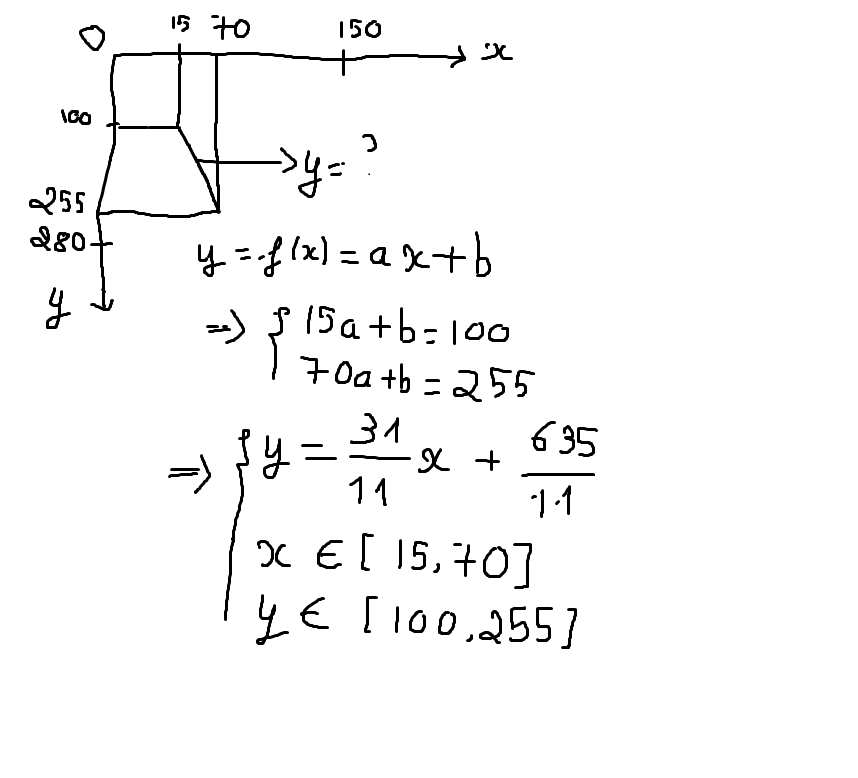 0 15 70 150 x
100
y = ?
255
280
y
y = f(x) = ax + b
⇒ { 15a + b = 100
70a + b = 255
⇒ { y = 31/11 x + 635/11
x ∈ [15, 70]
y ∈ [100, 255]